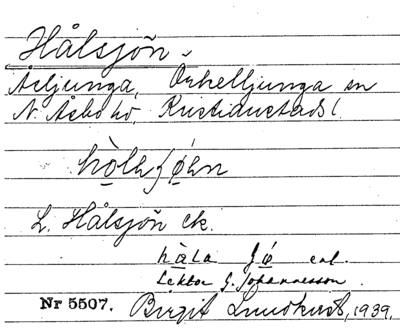 Hålsjön
Åsljunga, Örkelljunga sn
N. Åsbo hd, Kristianstads l.
hòlsʃø̀n
L. Hålsjön ek.
hàla ʃø̀ enl.
Lektor G. Johannesson
Nr 5507. Birgit Lundkvist, 1939.